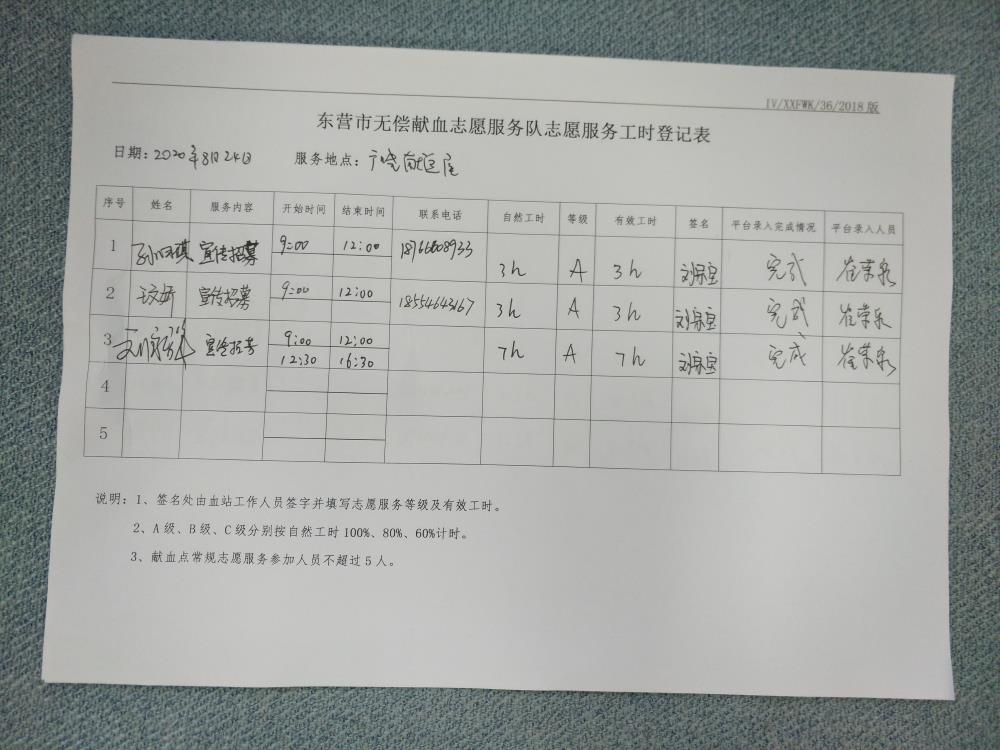 IV/XXFWK/36/2018版
东营市无偿献血志愿服务队志愿服务工时登记表
日期：2020年8月24日 服务地点：广饶献血屋
序号 姓名 服务内容 开始时间 结束时间 联系电话 自然工时 等级 有效工时 签名 平台录入完成情况 平台录入人员
1 宣传招募 9:00 12:00 3h A 3h 完成 崔荣泉
2 宣传招募 9:00 12:00 18554643167 3h A 3h 完成 崔荣泉
3 宣传招募 9:00 12:00 7h A 7h 完成 崔荣泉
12:30 16:30
4
5
说明：1、签名处由血站工作人员签字并填写志愿服务等级及有效工时。
2、A级、B级、C级分别按自然工时100%、80%、60%计时。
3、献血点常规志愿服务参加人员不超过5人。